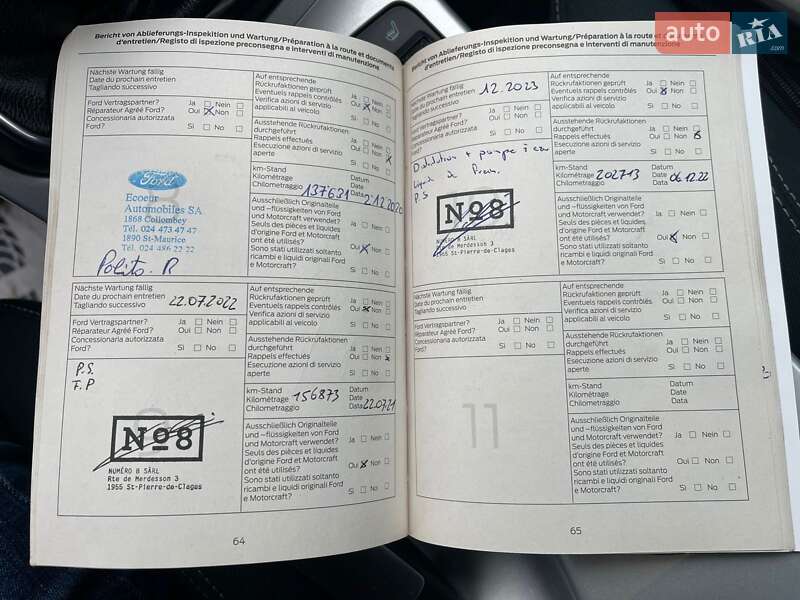 Bericht von Ablieferungs-Inspektion und Wartung/Préparation à la route et documents
d'entretien/Registo di ispezione preconsegna e interventi di manutenzione
Nächste Wartung fällig
Date du prochain entretien
Tagliando successivo
Auf entsprechende
Rückrufaktionen geprüft
Eventuels rappels contrôlés
Verifica azioni di servizio
applicabili al veicolo
Ja Nein
Oui Non
Sì No
Ford Vertragspartner?
Réparateur Agréé Ford?
Concessionaria autorizzata
Ford?
Ja Nein
Oui Non
Sì No
Ausstehende Rückrufaktionen
durchgeführt
Rappels effectués
Esecuzione azioni di servizio
aperte
Ja Nein
Oui Non
Sì No
Ford
Ecoeur
Automobiles SA
1868 Collombey
Tél. 024 473 47 47
1890 St-Maurice
Tél. 024 486 22 22
Polito. R
km-Stand
Kilométrage
Chilometraggio
137631
Datum
Date
Data
2.12.2020
Ausschließlich Originalteile
und –flüssigkeiten von Ford
und Motorcraft verwendet?
Seuls des pièces et liquides
d'origine Ford et Motorcraft
ont été utilisés?
Sono stati utilizzati soltanto
ricambi e liquidi originali Ford
e Motorcraft?
Ja Nein
Oui Non
Sì No
Nächste Wartung fällig
Date du prochain entretien
Tagliando successivo
22.07.2022
Auf entsprechende
Rückrufaktionen geprüft
Eventuels rappels contrôlés
Verifica azioni di servizio
applicabili al veicolo
Ja Nein
Oui Non
Sì No
Ford Vertragspartner?
Réparateur Agréé Ford?
Concessionaria autorizzata
Ford?
Ja Nein
Oui Non
Sì No
Ausstehende Rückrufaktionen
durchgeführt
Rappels effectués
Esecuzione azioni di servizio
aperte
Ja Nein
Oui Non
Sì No
P.S.
F.P
Nº8
NUMÉRO 8 SÀRL
Rte de Merdesson 3
1955 St-Pierre-de-Clages
km-Stand
Kilométrage
Chilometraggio
156873
Datum
Date
Data
22.07.21
Ausschließlich Originalteile
und –flüssigkeiten von Ford
und Motorcraft verwendet?
Seuls des pièces et liquides
d'origine Ford et Motorcraft
ont été utilisés?
Sono stati utilizzati soltanto
ricambi e liquidi originali Ford
e Motorcraft?
Ja Nein
Oui Non
Sì No
64
Bericht von Ablieferungs-Inspektion und Wartung/Préparation à la route et
d'entretien/Registo di ispezione preconsegna e interventi di manutenzione
Nächste Wartung fällig
Date du prochain entretien
Tagliando successivo
12.2023
Auf entsprechende
Rückrufaktionen geprüft
Eventuels rappels contrôlés
Verifica azioni di servizio
applicabili al veicolo
Ja Nein
Oui Non
Sì No
Ford Vertragspartner?
Réparateur Agréé Ford?
Concessionaria autorizzata
Ford?
Ja Nein
Oui Non
Sì No
Ausstehende Rückrufaktionen
durchgeführt
Rappels effectués
Esecuzione azioni di servizio
aperte
Ja Nein
Oui Non
Sì No
Distribution + pompe à eau
Liquide de frein
P.S
Nº8
NUMÉRO 8 SÀRL
Rte de Merdesson 3
1955 St-Pierre-de-Clages
km-Stand
Kilométrage
Chilometraggio
202713
Datum
Date
Data
06.12.22
Ausschließlich Originalteile
und –flüssigkeiten von Ford
und Motorcraft verwendet?
Seuls des pièces et liquides
d'origine Ford et Motorcraft
ont été utilisés?
Sono stati utilizzati soltanto
ricambi e liquidi originali Ford
e Motorcraft?
Ja Nein
Oui Non
Sì No
Nächste Wartung fällig
Date du prochain entretien
Tagliando successivo
Auf entsprechende
Rückrufaktionen geprüft
Eventuels rappels contrôlés
Verifica azioni di servizio
applicabili al veicolo
Ja Nein
Oui Non
Sì No
Ford Vertragspartner?
Réparateur Agréé Ford?
Concessionaria autorizzata
Ford?
Ja Nein
Oui Non
Sì No
Ausstehende Rückrufaktionen
durchgeführt
Rappels effectués
Esecuzione azioni di servizio
aperte
Ja Nein
Oui Non
Sì No
11
km-Stand
Kilométrage
Chilometraggio
Datum
Date
Data
Ausschließlich Originalteile
und –flüssigkeiten von Ford
und Motorcraft verwendet?
Seuls des pièces et liquides
d'origine Ford et Motorcraft
ont été utilisés?
Sono stati utilizzati soltanto
ricambi e liquidi originali Ford
e Motorcraft?
Ja Nein
Oui Non
Sì No
65
auto RIA .com